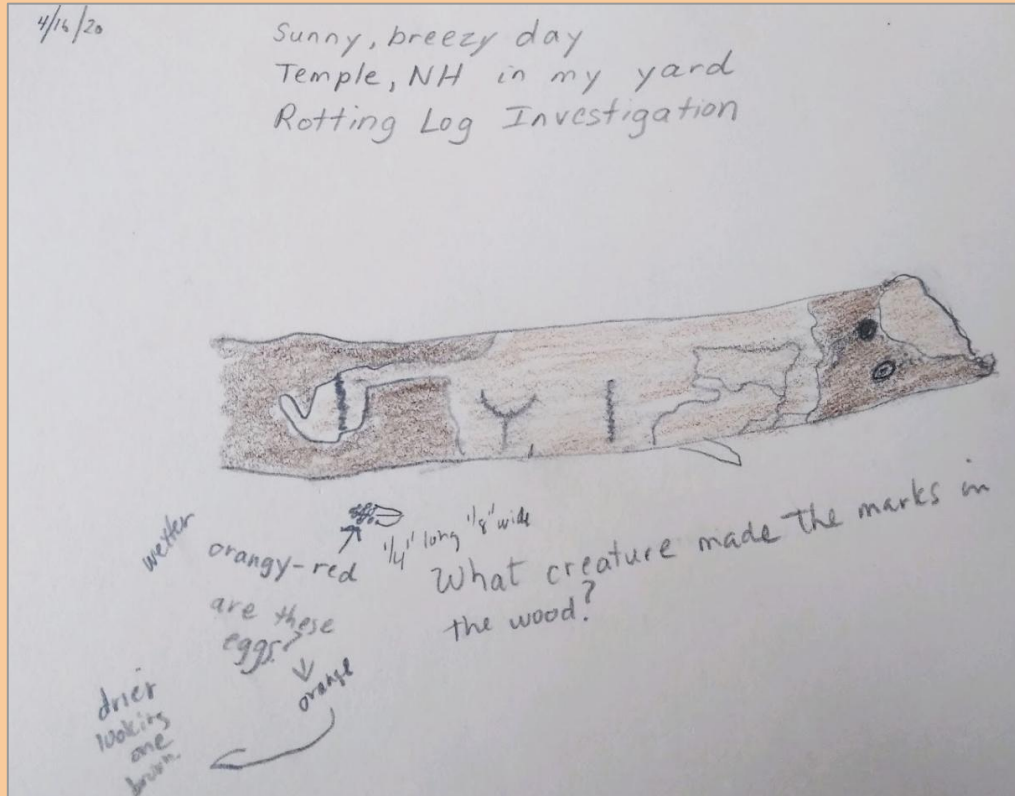 4/16/20
Sunny, breezy day
Temple, NH in my yard
Rotting Log Investigation
1/4" long 1/8" wide
wetter
orangy-red
are these
eggs?
orange
drier
looking
one
brown.
What creature made the marks in
the wood?